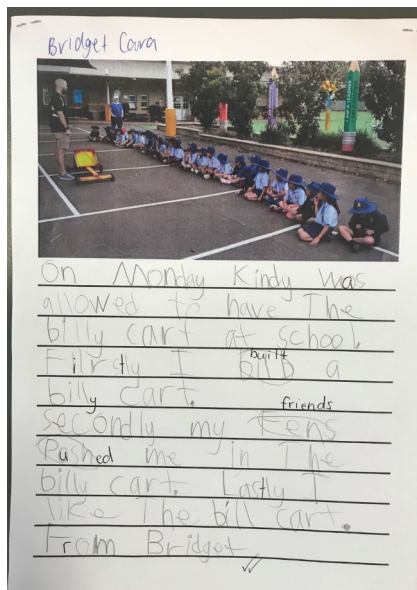 Bridget Cara
On Monday Kindy was
allowed to have The
billy cart at school
Firstly I built a
billy cart.
friends
secondly my Fens
Pushed me in The
billy cart. Lastly I
like The bill cart.
From Bridget